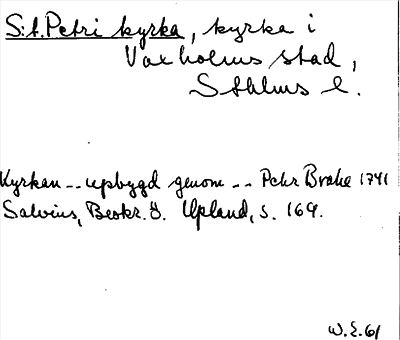 S:t. Petri kyrka, kyrka i
Vaxholms stad,
Sthlms l.
Kyrkan -- upbygd genom -- Pehr Brahe 1741
Salvius, Beskr. Ö. Upland, s. 169.
W.E. 61